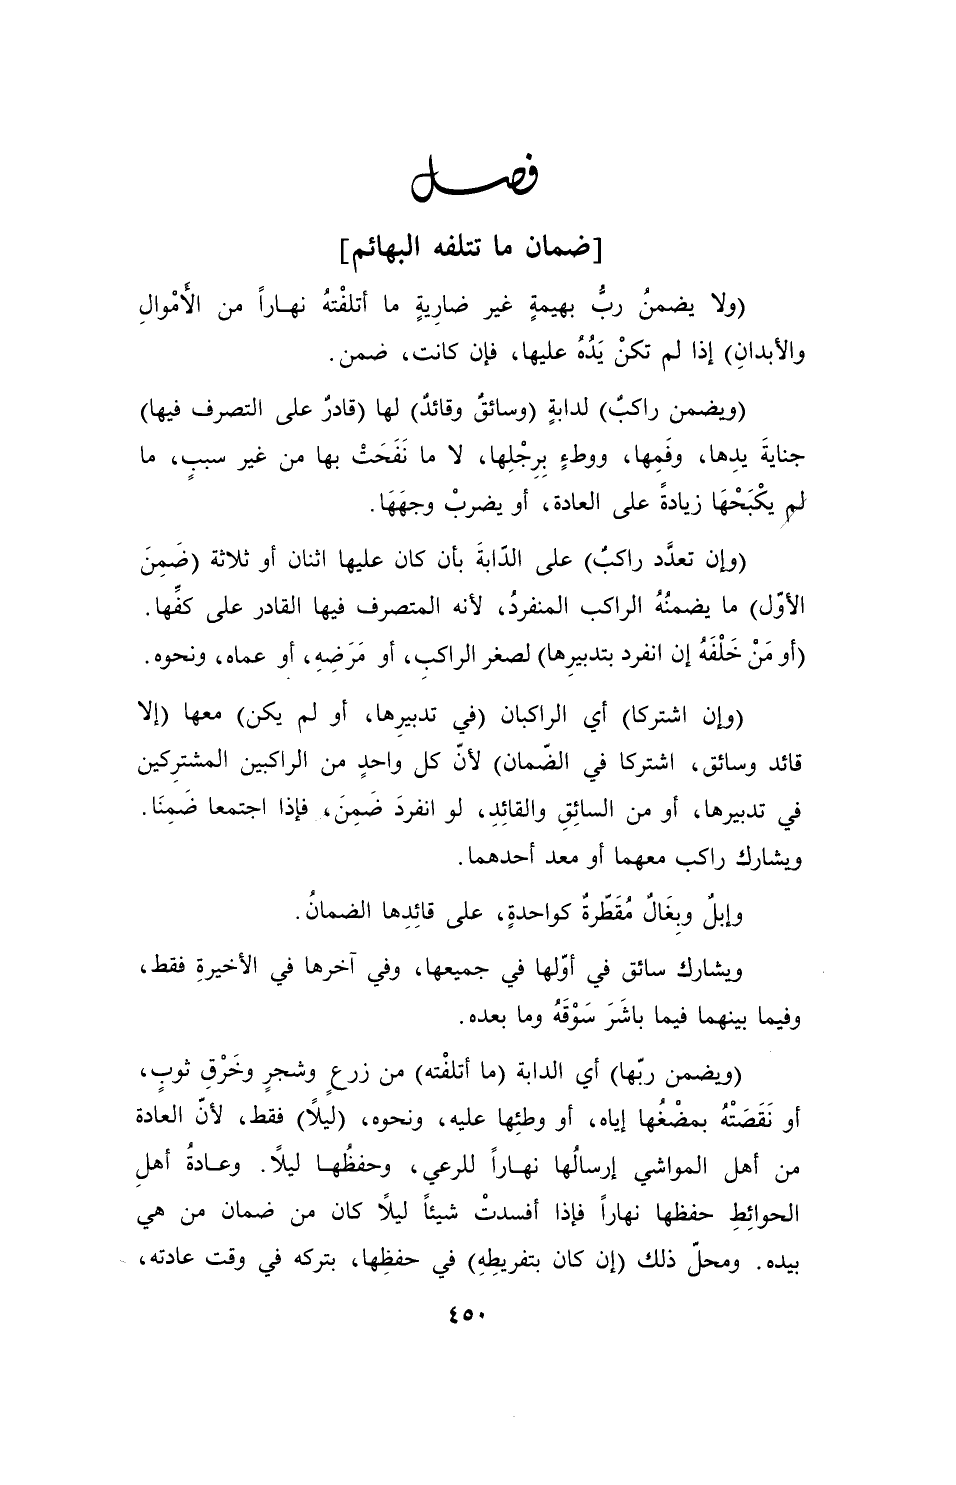 فصل
[ضمان ما تتلفه البهائم]
(ولا يضمنُ ربُّ بهيمةٍ غير ضاريةٍ ما أتلفْتهُ نهاراً من الأَمْوالِ
والأبدانِ) إذا لم تكنْ يَدُهُ عليها، فإن كانت، ضمن.
(ويضمن راكبٌ) لدابةٍ (وسائقٌ وقائدٌ) لها (قادرٌ على التصرف فيها)
جنايةَ يدِها، وفَمِها، ووطءٍ بِرِجْلِها، لا ما نَفَحَتْ بها من غير سببٍ، ما
لم يكْبَحْهَا زيادةً على العادة، أو يضربْ وجهَهَا.
(وإن تعدَّد راكبٌ) على الدّابةَ بأن كان عليها اثنان أو ثلاثة (ضَمِنَ
الأوّل) ما يضمنُهُ الراكب المنفردُ، لأنه المتصرف فيها القادر على كفِّها.
(أو مَنْ خَلْفَهُ إن انفرد بتدبيرها) لصغر الراكبِ، أو مَرَضِهِ، أو عماه، ونحوه.
(وإن اشتركا) أي الراكبان (في تدبيرِها، أو لم يكن) معها (إلا
قائد وسائق، اشتركا في الضّمان) لأنّ كل واحدٍ من الراكبين المشتركين
في تدبيرها، أو من السائِقِ والقائِدِ، لو انفردَ ضَمِنَ، فإذا اجتمعا ضَمِنَا.
ويشارك راكب معهما أو معد أحدهما.
وإبلٌ وبِغَالٌ مُقَطّرةٌ كواحدةٍ، على قائِدِها الضمانُ.
ويشارك سائق في أوّلها في جميعها، وفي آخرها في الأخيرةِ فقط،
وفيما بينهما فيما باشَرَ سَوْقَهُ وما بعده.
(ويضمن ربّها) أي الدابة (ما أتلفْته) من زرعٍ وشجرٍ وخَرْقِ ثوبٍ،
أو نَقَصَتْهُ بمضْغُها إياه، أو وطئِها عليه، ونحوه، (ليلًا) فقط، لأنّ العادة
من أهل المواشي إرسالُها نهاراً للرعي، وحفظُها ليلًا. وعادةُ أهلِ
الحوائِطِ حفظها نهاراً فإذا أفسدتْ شيئاً ليلًا كان من ضمان من هي
بيده. ومحلّ ذلك (إن كان بتفريطِهِ) في حفظِها، بتركه في وقت عادته،
٤٥٠